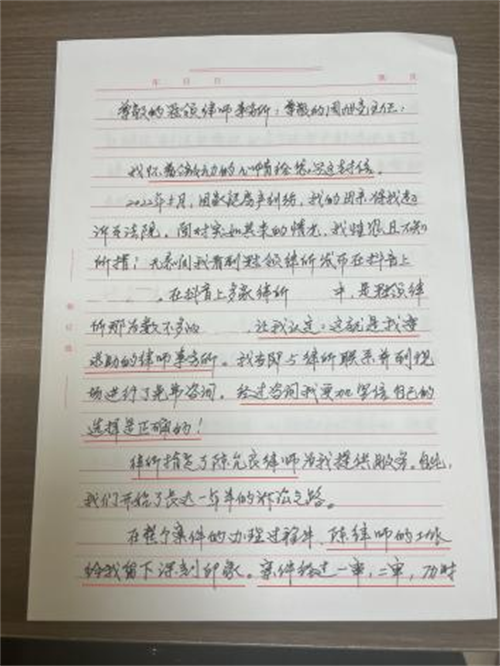 年 月 日 第 页
尊敬的冠领律师事务所,尊敬的周旭亮主任:
我怀着激动的心情给您写这封信。
2022年5月,因家庭房产纠纷,我的因亲将我起
诉至法院。面对突如其来的情况,我惶恐且不知
所措!无奈间我看到冠领律所发布在抖音上
,在抖音上多家律所 中,是冠领律
所那为数不多的 ,让我认定:这就是我要
求助的律师事务所。我当即与律所联系并到现
场进行了免费咨询。经过咨询我更加坚信自己的
选择是正确的!
律所指定了陈允良律师为我提供服务。自此,
我们开始了长达一年半的诉讼之路。
在整个案件的办理过程中,陈律师的工作
给我留下深刻印象。案件经过一审,二审,历时